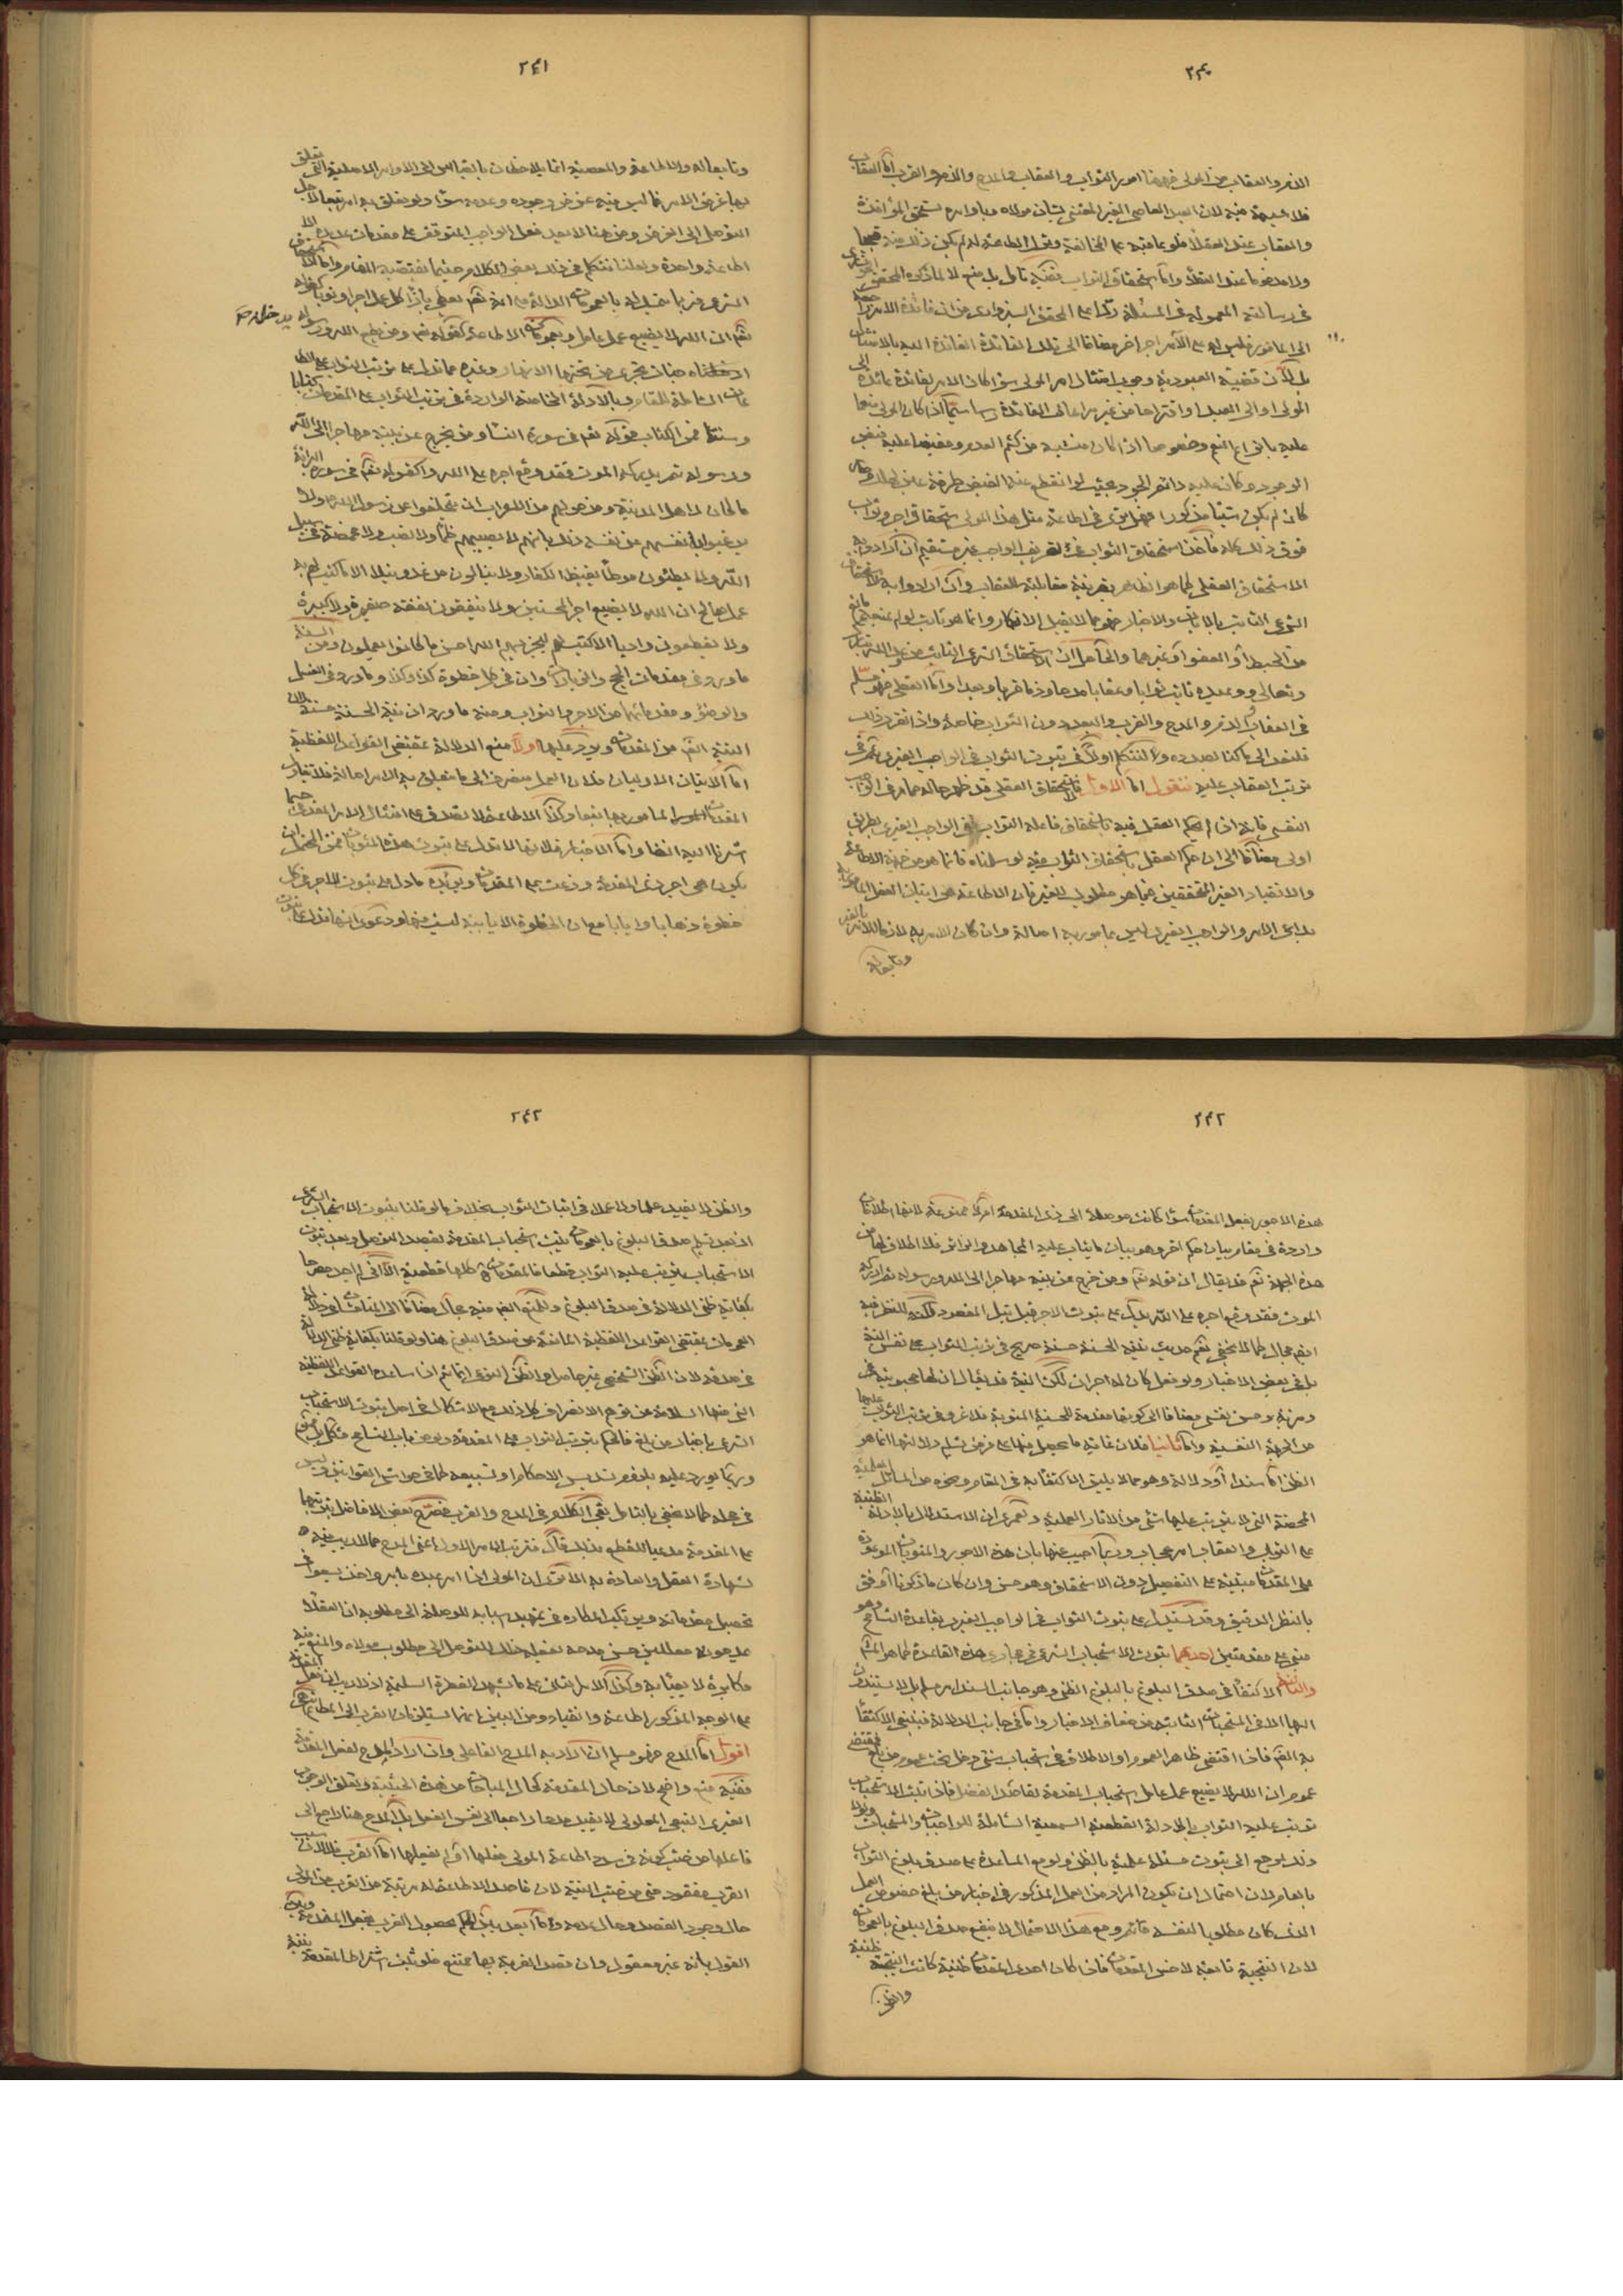 ٢٤٠
الذم والعقاب من المولى فههنا امور الثواب والعقاب والمدح والذم والقرب اما العقاب
فلا شبهة فيه لان العبد العاصى الغير المعتنى بشان مولاه وباوامره يستحق المؤاخذة
والعقاب عند العقلاء فلو عاقبه على المخالفة وترك الطاعة له لم يكن ذلك منه قبيحا
ولا مذموما عند العقلاء واما استحقاق الثواب ففيه تامل بل منع لا لما ذكره المحقق
فى رسالته المعمولة فى المسئلة ردا على المحقق السبزوارى من ان فائدة الامر
الى المامور فليس له على الآمر اجر اخر مضافا الى تلك الفائدة العائدة اليه بالامتثال
بل لان قضية العبودية وجوب امتثال امر المولى سواء كان الامر لفائدة عائدة الى
المولى او الى العبد او اقتراحا من غير مراعاة الفائدة سيما اذا كان المولى منعما
عليه بانواع النعم وخصوصا اذا كان منشئه من كتم العدم ومفيضا عليه فيض
الوجود وكان عليه دائم الجود بحيث لو انقطع عنه الفيض طرفة عين لهلك
كان لم يكن شيئا مذكورا فهل ترى فى اطاعة مثل هذا المولى استحقاق اجر وثواب
فوق ذلك كله فاخذ استحقاق الثواب فى تعريف الواجب غير مستقيم ان ارادوا به
الاستحقاق العقلى كما هو الظاهر بقرينة مقابلته للعقاب وان ارادوا به الاستحقاق
الشرعى الثابت بالايات والاخبار فهو مما لا يقبل الانكار وانما هو ثابت لو لم يمنعهم مانع
من الحبط او العفو او غيرهما والحاصل ان الاستحقاق الشرعى الثابت من عند الله تبارك
وتعالى ووعيده ثابت ثوابا وعقابا مدحا وذما قربا وبعدا واما العقلى فهو مسلم
فى العقاب والذم والمدح والقرب والبعد دون الثواب خاصة واذا تقرر ذلك
فلنعد الى ما كنا بصدده ولنتكلم اولا فى ثبوت الثواب فى الواجب الغيرى ثم فى
ترتب العقاب عليه فنقول اما الاول فالاستحقاق العقلى قد ظهر حاله مما مر فى الواجب
النفسى فانه اذا لم يحكم العقل فيه باستحقاق فاعله الثواب ففى الواجب الغيرى بطريق
اولى مضافا الى ان حكم العقل باستحقاق الثواب فيه لو سلمناه فانما هو من جهة الاطاعة
والانقياد الغير المتحققين فيما هو مطلوب للغير فان الاطاعة هى اتيان الفعل المامور به
بداعى الامر والواجب الغيرى ليس بمامور به اصالة وان كان للامر به لازما للامر بالغير
وتابعا له
٢٤١
وتابعا له والاطاعة والمعصية انما يلاحظان بالقياس الى الاوامر الاصلية التى تعلق
بها غرض الامر فما ليس فيه عن غرض وجوده وعدمه سواء ولو تعلق به امر تبعا لاجل
التوصل الى الغرض ومن هنا لا يعد فعل الواجب المتوقف على مقدمات عديدة الا
اطاعة واحدة ولعلنا نتكلم فى ذلك بعض الكلام حيثما يقتضيه المقام واما الاستحقاق
الشرعى فربما يتمسك له بالعمومات الدالة على انه تعالى يعطى بازاء كل عمل اجرا وثوابا كقوله
تعالى ان الله لا يضيع عمل عامل وبعمومات الاطاعة كقوله تعالى ومن يطع الله ورسوله يدخله
ادخلناه جنات تجرى من تحتها الانهار وغيره مما تدل على ترتب الثواب على الطاعات
الشاملة للمقام وبالادلة الخاصة الواردة فى ترتب الثواب على المقدمات كتابا
وسنة فمن الكتاب قوله تعالى فى سورة النساء ومن يخرج من بيته مهاجرا الى الله
ورسوله ثم يدركه الموت فقد وقع اجره على الله وكقوله تعالى فى سورة البرائة
ما كان لاهل المدينة ومن حولهم من الاعراب ان يتخلفوا عن رسول الله ولا
يرغبوا بانفسهم عن نفسه ذلك بانهم لا يصيبهم ظمأ ولا نصب ولا مخمصة فى سبيل
الله ولا يطئون موطئا يغيظ الكفار ولا ينالون من عدو نيلا الا كتب لهم به
عمل صالح ان الله لا يضيع اجر المحسنين ولا ينفقون نفقة صغيرة ولا كبيرة
ولا يقطعون واديا الا كتب لهم ليجزيهم الله احسن ما كانوا يعملون ومن السنة
ما ورد فى مقدمات الحج والزيارات وان فى كل خطوة كذا وكذا وما ورد فى الغسل
والوضوء ومقدماتهما من الاجر والثواب ومنه ما ورد ان نية الحسنة حسنة لان
النية ايضا من المقدمات ويرد عليها اولا منع الدلالة بمقتضى القواعد اللفظية
اما الايتان الاوليان فلان العمل منصرف الى ما يتعلق به الامر اصالة فلا تعد
المقدمات المامور بها تبعا وكذا الاطاعة لا تصدق على امتثال الامر المقدمى حسبما
اشرنا اليه انفا واما الاخبار فلانها لا تدل على ثبوت هذه المثوبات فمن المحتمل ان
يكون هى اجر ذى المقدمة وزعت على المقدمات ويؤيده ما دل على ثبوت الاجر فى كل
خطوة ذهابا وايابا مع ان الخطوة الايابية ليست مقدمة ودعوى انها تدل على ثبوت
٢٤٢
هذه الاجور بفعل المقدمات سواء كانت موصلة الى ذى المقدمة ام لا ممنوعة لانها اطلاقات
واردة فى مقام بيان حكم اخر وهو بيان ما يثاب عليه المجاهد والزائر فلا اطلاق لها من
هذه الجهة نعم قد يقال ان قوله تعالى ومن خرج من بيته مهاجرا الى الله ورسوله ثم ادركه
الموت فقد وقع اجره على الله يدل على ثبوت الاجر قبل نيل المقصود لكنه للنظر فيه
ايضا مجال كما لا يخفى نعم حديث نية الحسنة حسنة صريح فى ترتب الثواب على نفس النية
بل فى بعض الاخبار ولو فعل كان له اجران لكن النية قد يقال ان لها محبوبية
ومزية وحسن نفسى مضافا الى كونها مقدمة للحسنة المنوية فلا غرو فى ترتب الثواب عليها
من الجهة النفسية واما ثانيا فلان غاية ما يحصل منها على فرض تسليم دلالتها انما هو
الظن اما سندا او دلالة وهو مما لا يليق الاكتفاء به فى المقام ونحوه من المسائل العلمية
المحضة التى لا يترتب عليها شئ من الاثار العملية ولعمرى ان الاستدلال بالادلة الظنية
على الثواب والعقاب امر عجاب وربما اجيب عنها بان هذه الاجور والمثوبات الموعودة
على المقدمات مبتنية على التفضل دون الاستحقاق وهو حسن وان كان ما ذكرنا اوفق
بالنظر الدقيق وقد يستدل على ثبوت الثواب فى الواجب الغيرى بقاعدة التسامح وهو
مبنى على مقدمتين احديهما ثبوت الاستحباب الشرعى فى مجارى هذه القاعدة كما هو المشهور
والثانية الاكتفاء فى صدق البلوغ بالبلوغ الظنى وهو جانب السند مسلم بل لا يستند
اليها الا فى المستحبات الثابتة من ضعاف الاخبار واما فى جانب الدلالة فينبغى الاكتفاء
به ايضا فاذا اقتضى ظاهر العموم او الاطلاق استحباب شئ دخل تحت عموم من بلغ فمقتضى
عموم ان الله لا يضيع عمل عامل استحباب المقدمة لقاعدة التفضل فاذا ثبت الاستحباب
ترتب عليه الثواب بالادلة القطعية السمعية الشاملة للواجبات والمستحبات
وذلك يرجع الى ثبوت مسئلة علمية بالظن ولو مع المساعدة على صدق بلوغ الثواب
بالعام لان احتمال ان يكون المراد من العمل المذكور فى اخبار من بلغ خصوص العمل
الذى كان مطلوبا لنفسه قائم ومع هذا الاحتمال لا ينفع صدق البلوغ بالعمومات
لان النتيجة تابعة لاخس المقدمات فاذا كان احدى المقدمات ظنية كانت النتيجة ظنية
والظن
٢٤٣
والظن لا يفيد علما ولا عملا فى اثبات الثواب بخلاف ما لو قلنا بثبوت الاستحباب الشرعى
اذ بعد تسليم صدق البلوغ بالعمومات يثبت استحباب المقدمة بقصد التوصل وبعد ثبوت
الاستحباب يترتب عليه الثواب قطعا فالمقدمات كلها قطعية
بكفاية ظنى الدلالة فى صدق البلوغ وللمنع ايضا فيه مجال مضافا الى
العمومات بمقتضى القواعد اللفظية المانعة عن صدق البلوغ هنا ولو قلنا بكفاية ظنى الدلالة
فى صدقه لان الظن الشخصى غير حاصل والظن النوعى انما يتم اذا ساعده القواعد اللفظية
التى منها السلامة من توهم الانصراف كل ذلك مع الاشكال فى اصل ثبوت الاستحباب
الشرعى باخبار من بلغ فالحكم بترتب الثواب على المقدمة ولو من باب التسامح مشكل
وربما يورد عليه بلزوم تسديس الاحكام او تسبيعه كما فى حواشى القوانين وليس
فى محله كما لا يخفى بالتامل بقى الكلام فى المدح والقرب فصرح بعض الافاضل بترتبهما
على المقدمة مدعيا للقطع بذلك قال فترتب الامر الاول اعنى المدح مما لا ريب فيه
لشهادة العقل والعادة به الا ترى ان المولى اذا امر عبده بامر واخذ يسعى فى
تحصيل مقدماته ويرتكب المكاره فى تمهيد اسبابه للوصلة الى مطلوبه ان العقلاء
يمدحونه معللين حسن مدحه بفعله ذلك للتوصل الى مطلوب مولاه والمنع فيه
مكابرة لا يعتنى به وكذا الامر الثالث على ما يشهد به الفطرة السليمة اذ لا ريب ان فعل المقدمة
على الوجه المذكور اطاعة وانقياد ومن البين انهما يستلزمان القرب الى المطاع انتهى
اقول اما المدح فهو مسلم ان اراد به المدح الفاعلى وان اراد المدح لفعل المقدمة
ففيه منع واضح لان حال المقدمة كحال المباحات من هذه الحيثية وتعلق الوجوب
الغيرى التبعى المعلولى لا يفيد مدحا راجعا الى نفس الفعل بل المدح هنا راجع الى
فاعلها من حيث كونه فى صدد اطاعة المولى فعلها او لم يفعلها اما القرب فلان سبب
القرب مفقود حتى من حيث النية لان قاصد الاطاعة له مرتبة من القرب من المولى
حال وجود القصد وحال عدمه واما بعد الحكم بحصول القرب بفعل المقدمة ويمكن
القول بانه غير معقول وان قصد القربة بها ممتنع فلو ثبت اشتراط المقدمة بنية